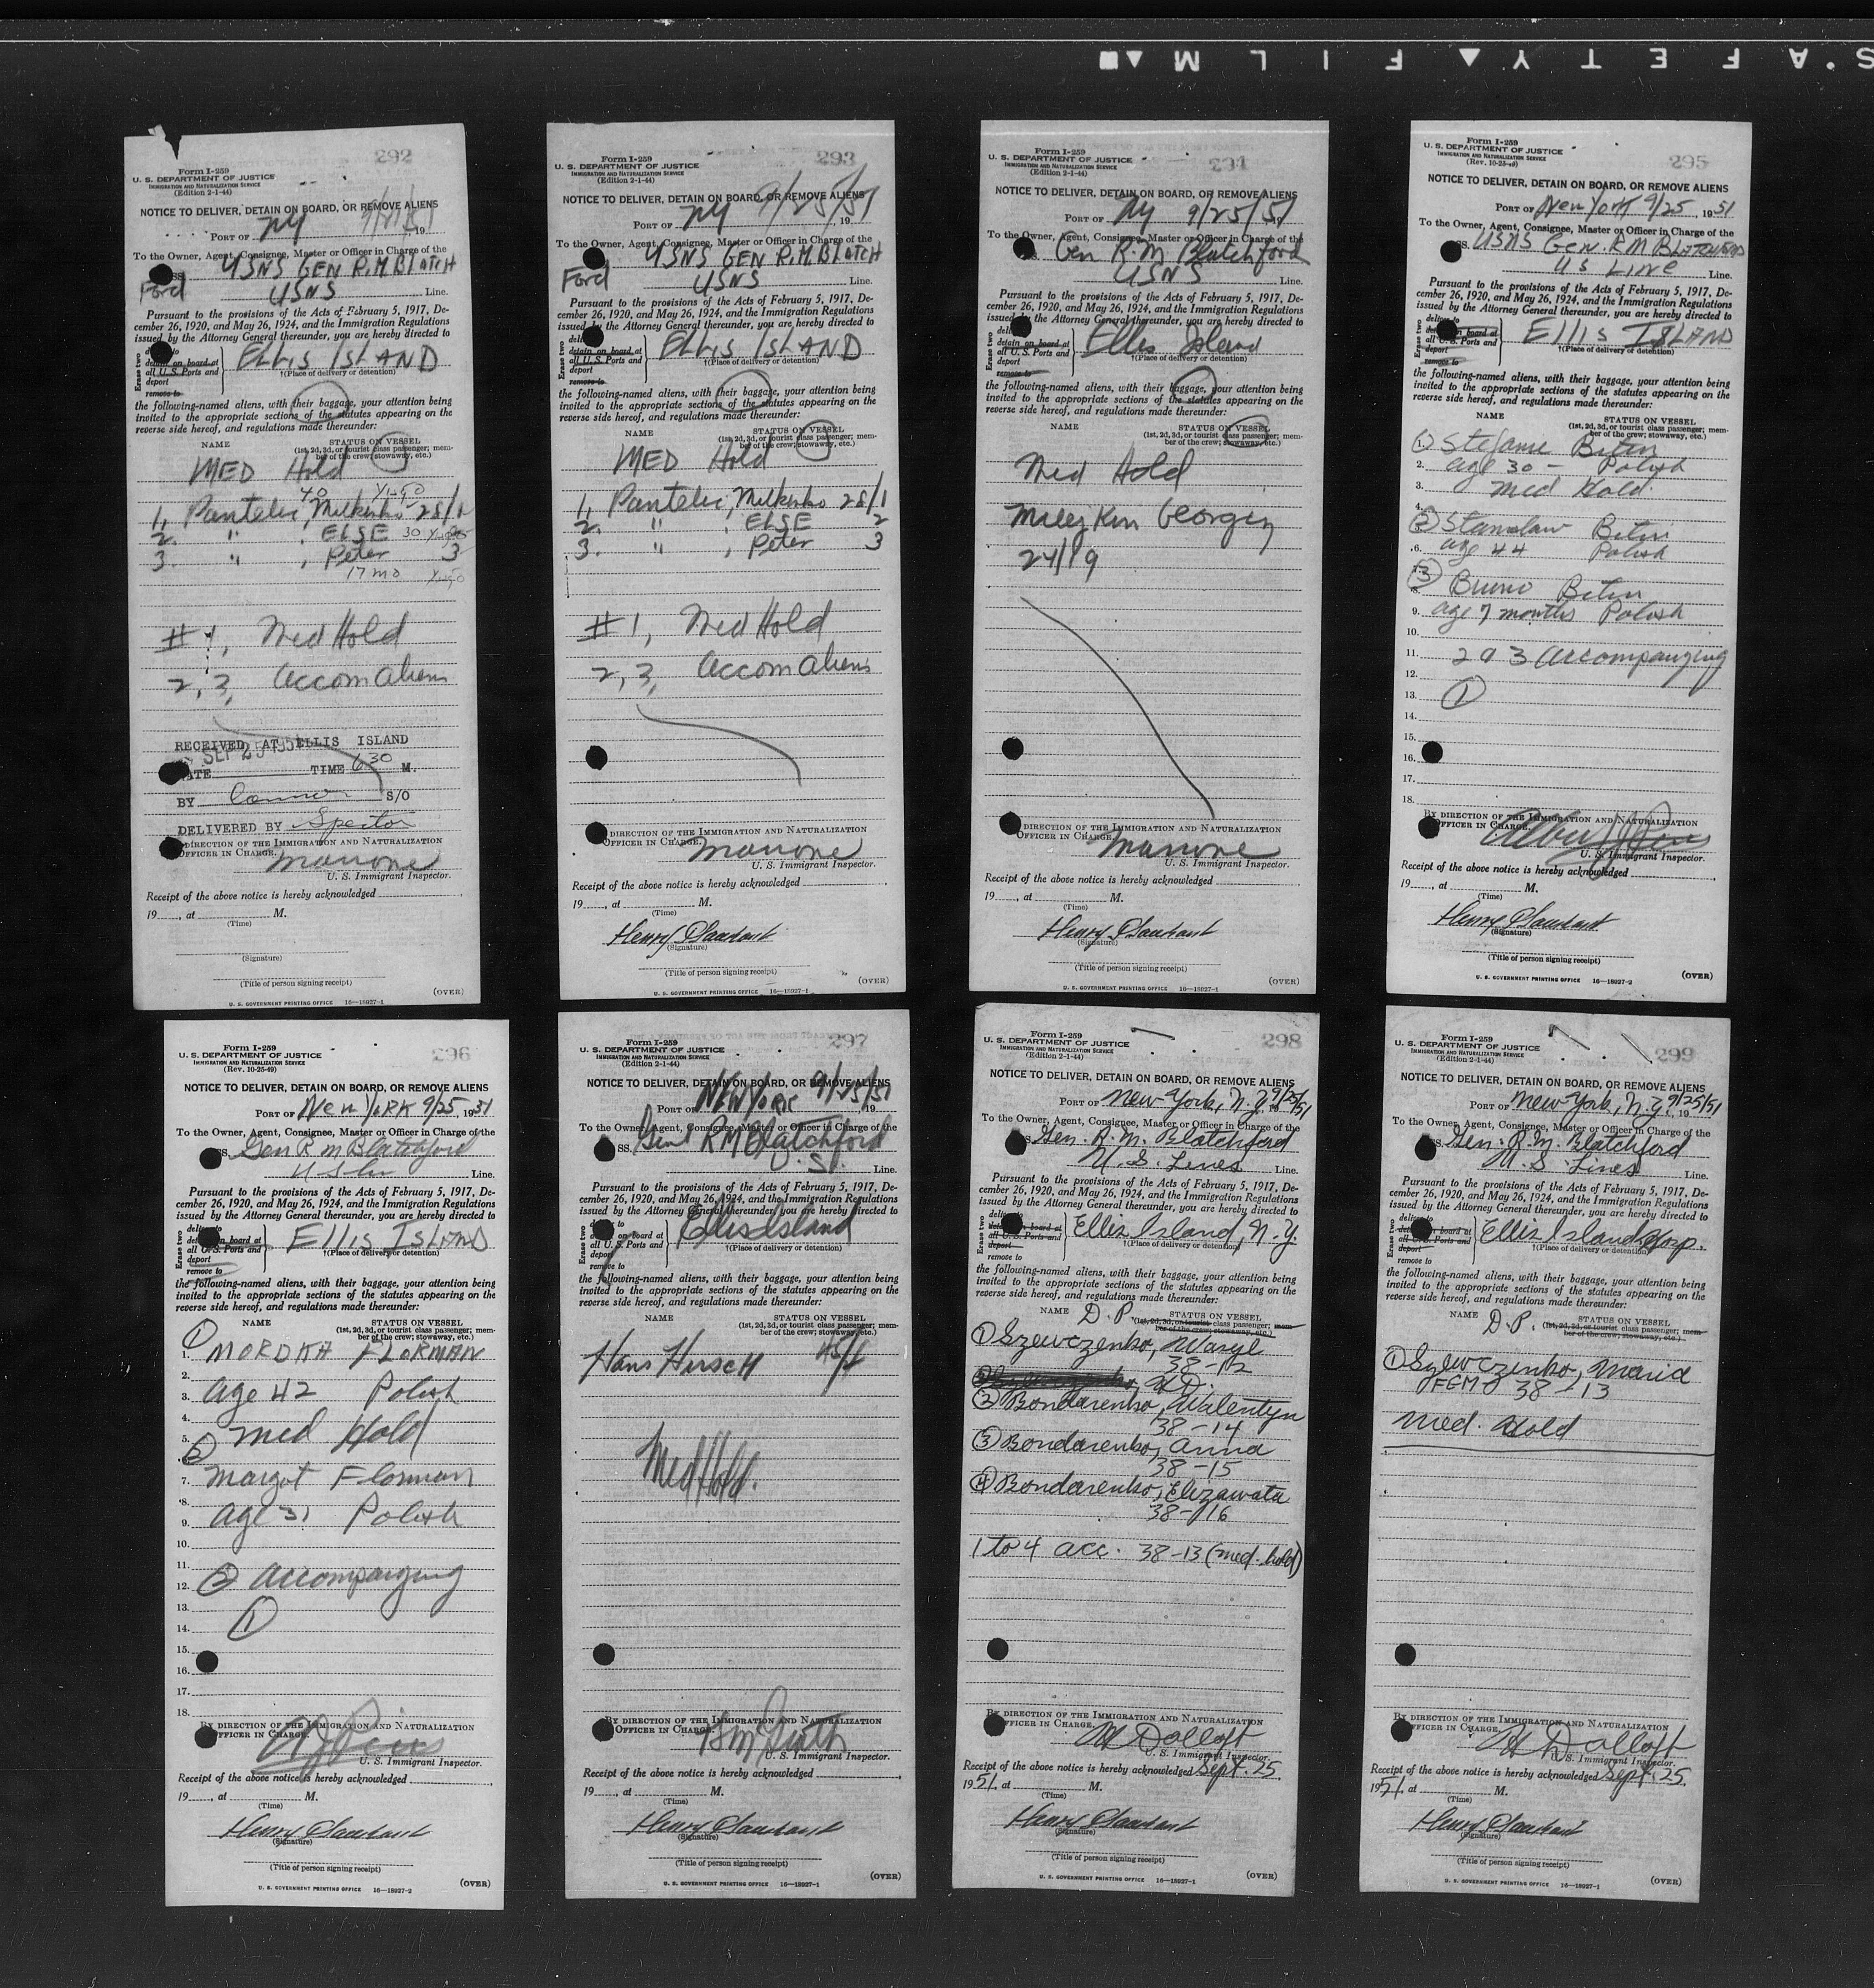 S'AFETY▲FILM▲■
292
Form I-259
U. S. DEPARTMENT OF JUSTICE
IMMIGRATION AND NATURALIZATION SERVICE
(Edition 2-1-44)
NOTICE TO DELIVER, DETAIN ON BOARD, OR REMOVE ALIENS
PORT OF NY 9/25/51, 19
To the Owner, Agent, Consignee, Master or Officer in Charge of the
SS. USNS GEN R.M. BLATCH
Ford USNS Line.
Pursuant to the provisions of the Acts of February 5, 1917, De-
cember 26, 1920, and May 26, 1924, and the Immigration Regulations
issued by the Attorney General thereunder, you are hereby directed to
Erase two
detain on board at
all U. S. Ports and
deport
remove to
ELLIS ISLAND
†(Place of delivery or detention)
the following-named aliens, with their baggage, your attention being
invited to the appropriate sections of the statutes appearing on the
reverse side hereof, and regulations made thereunder:
NAME STATUS ON VESSEL
(1st, 2d, 3d, or tourist class passenger; mem-
ber of the crew; stowaway, etc.)
MED Hold
40 Yugo
1, Pantelic, 28/1
2. " , ELSE 30
3. " , Peter 3
17 mo Yugo
#1, Med Hold
2, 3, Accom Aliens
RECEIVED AT ELLIS ISLAND
SEP 25 1951
DATE TIME 6:30 M.
BY S/O
DELIVERED BY Spector
BY DIRECTION OF THE IMMIGRATION AND NATURALIZATION
OFFICER IN CHARGE. Manone
U. S. Immigrant Inspector.
Receipt of the above notice is hereby acknowledged
19, at M.
(Time)
(Signature)
(Title of person signing receipt)
(OVER)
U. S. GOVERNMENT PRINTING OFFICE 16—18927-1
293
Form I-259
U. S. DEPARTMENT OF JUSTICE
IMMIGRATION AND NATURALIZATION SERVICE
(Edition 2-1-44)
NOTICE TO DELIVER, DETAIN ON BOARD, OR REMOVE ALIENS
PORT OF NY 9/25/51, 19
To the Owner, Agent, Consignee, Master or Officer in Charge of the
USNS GEN R.M. BLATCH
Ford USNS Line.
Pursuant to the provisions of the Acts of February 5, 1917, De-
cember 26, 1920, and May 26, 1924, and the Immigration Regulations
issued by the Attorney General thereunder, you are hereby directed to
Erase two
detain on board at
all U. S. Ports and
deport
remove to
ELLIS ISLAND
†(Place of delivery or detention)
the following-named aliens, with their baggage, your attention being
invited to the appropriate sections of the statutes appearing on the
reverse side hereof, and regulations made thereunder:
NAME STATUS ON VESSEL
(1st, 2d, 3d, or tourist class passenger; mem-
ber of the crew; stowaway, etc.)
MED Hold
1, Pantelic, 28/1
2. " , ELSE 2
3. " , Peter 3
#1, Med Hold
2, 3, Accom Aliens
BY DIRECTION OF THE IMMIGRATION AND NATURALIZATION
OFFICER IN CHARGE. Manone
U. S. Immigrant Inspector.
Receipt of the above notice is hereby acknowledged
19, at M.
(Time)
Henry
(Signature)
(Title of person signing receipt)
(OVER)
U. S. GOVERNMENT PRINTING OFFICE 16—18927-1
294
Form I-259
U. S. DEPARTMENT OF JUSTICE
IMMIGRATION AND NATURALIZATION SERVICE
(Edition 2-1-44)
NOTICE TO DELIVER, DETAIN ON BOARD, OR REMOVE ALIENS
PORT OF NY 9/25/51
To the Owner, Agent, Consignee, Master or Officer in Charge of the
Gen R. M Blatchford
USNS Line.
Pursuant to the provisions of the Acts of February 5, 1917, De-
cember 26, 1920, and May 26, 1924, and the Immigration Regulations
issued by the Attorney General thereunder, you are hereby directed to
Erase two
detain on board at
all U. S. Ports and
deport
remove to
Ellis Island
†(Place of delivery or detention)
the following-named aliens, with their baggage, your attention being
invited to the appropriate sections of the statutes appearing on the
reverse side hereof, and regulations made thereunder:
NAME STATUS ON VESSEL
(1st, 2d, 3d, or tourist class passenger; mem-
ber of the crew; stowaway, etc.)
Med Hold
24/19
BY DIRECTION OF THE IMMIGRATION AND NATURALIZATION
OFFICER IN CHARGE. Manone
U. S. Immigrant Inspector.
Receipt of the above notice is hereby acknowledged
19, at M.
(Time)
Henry
(Signature)
(Title of person signing receipt)
(OVER)
U. S. GOVERNMENT PRINTING OFFICE 16—18927-1
295
Form I-259
U. S. DEPARTMENT OF JUSTICE
IMMIGRATION AND NATURALIZATION SERVICE
(Rev. 10-25-49)
NOTICE TO DELIVER, DETAIN ON BOARD, OR REMOVE ALIENS
PORT OF New York 9/25, 1951
To the Owner, Agent, Consignee, Master or Officer in Charge of the
SS. USNS Gen. RM BLATCHFORD
US LINE Line.
Pursuant to the provisions of the Acts of February 5, 1917, De-
cember 26, 1920, and May 26, 1924, and the Immigration Regulations
issued by the Attorney General thereunder, you are hereby directed to
Erase two
deliver to
detain on board at
all U. S. Ports and
deport
remove to
Ellis ISLAND
†(Place of delivery or detention)
the following-named aliens, with their baggage, your attention being
invited to the appropriate sections of the statutes appearing on the
reverse side hereof, and regulations made thereunder:
NAME STATUS ON VESSEL
(1st, 2d, 3d, or tourist class passenger; mem-
ber of the crew; stowaway, etc.)
1. Stefanie
2. age 30 — Polish
3. Med Hold.
4.
5. 2 Stanislaw
6. age 44 Polish
7. 3
8. Bruno
9. age 7 months Polish
10.
11. 2 & 3 accompanying
12.
13. 1
14.
15.
16.
17.
18.
BY DIRECTION OF THE IMMIGRATION AND NATURALIZATION
OFFICER IN CHARGE.
U. S. Immigrant Inspector.
Receipt of the above notice is hereby acknowledged
19, at M.
(Time)
Henry
(Signature)
(Title of person signing receipt)
U. S. GOVERNMENT PRINTING OFFICE 16—18927-2
(OVER)
296
Form I-259
U. S. DEPARTMENT OF JUSTICE
IMMIGRATION AND NATURALIZATION SERVICE
(Rev. 10-25-49)
NOTICE TO DELIVER, DETAIN ON BOARD, OR REMOVE ALIENS
PORT OF New YORK 9/25, 1951
To the Owner, Agent, Consignee, Master or Officer in Charge of the
SS. Gen R M Blatchford
Line.
Pursuant to the provisions of the Acts of February 5, 1917, De-
cember 26, 1920, and May 26, 1924, and the Immigration Regulations
issued by the Attorney General thereunder, you are hereby directed to
Erase two
deliver to
detain on board at
all U. S. Ports and
deport
remove to
Ellis ISLAND
†(Place of delivery or detention)
the following-named aliens, with their baggage, your attention being
invited to the appropriate sections of the statutes appearing on the
reverse side hereof, and regulations made thereunder:
NAME STATUS ON VESSEL
(1st, 2d, 3d, or tourist class passenger; mem-
ber of the crew; stowaway, etc.)
1
1. MORDKA FLORMAN
2.
3. age 42 Polish
4.
5. Med Hold
6. 2
7. Margot Florman
8.
9. age 31 Polish
10.
11.
12. 2 accompanying
13.
14. 1
15.
16.
17.
18.
BY DIRECTION OF THE IMMIGRATION AND NATURALIZATION
OFFICER IN CHARGE.
U. S. Immigrant Inspector.
Receipt of the above notice is hereby acknowledged
19, at M.
(Time)
Henry
(Signature)
(Title of person signing receipt)
(OVER)
U. S. GOVERNMENT PRINTING OFFICE 16—18927-2
297
Form I-259
U. S. DEPARTMENT OF JUSTICE
IMMIGRATION AND NATURALIZATION SERVICE
(Edition 2-1-44)
NOTICE TO DELIVER, DETAIN ON BOARD, OR REMOVE ALIENS
PORT OF NEW YORK 9/25/51, 19
To the Owner, Agent, Consignee, Master or Officer in Charge of the
SS. Genl RM Blatchford
U.S. Line.
Pursuant to the provisions of the Acts of February 5, 1917, De-
cember 26, 1920, and May 26, 1924, and the Immigration Regulations
issued by the Attorney General thereunder, you are hereby directed to
Erase two
deliver to
detain on board at
all U. S. Ports and
deport
remove to
Ellis Island
†(Place of delivery or detention)
the following-named aliens, with their baggage, your attention being
invited to the appropriate sections of the statutes appearing on the
reverse side hereof, and regulations made thereunder:
NAME STATUS ON VESSEL
(1st, 2d, 3d, or tourist class passenger; mem-
ber of the crew; stowaway, etc.)
Hans Hirsch
Med Hold.
BY DIRECTION OF THE IMMIGRATION AND NATURALIZATION
OFFICER IN CHARGE.
U. S. Immigrant Inspector.
Receipt of the above notice is hereby acknowledged
19, at M.
(Time)
Henry
(Signature)
(Title of person signing receipt)
(OVER)
U. S. GOVERNMENT PRINTING OFFICE 16—18927-1
298
Form I-259
U. S. DEPARTMENT OF JUSTICE
IMMIGRATION AND NATURALIZATION SERVICE
(Edition 2-1-44)
NOTICE TO DELIVER, DETAIN ON BOARD, OR REMOVE ALIENS
PORT OF New York, N.Y. 9/25/51
To the Owner, Agent, Consignee, Master or Officer in Charge of the
SS. Gen. R. M. Blatchford
U. S. Lines Line.
Pursuant to the provisions of the Acts of February 5, 1917, De-
cember 26, 1920, and May 26, 1924, and the Immigration Regulations
issued by the Attorney General thereunder, you are hereby directed to
Erase two
deliver to
detain on board at
all U. S. Ports and
deport
remove to
Ellis Island, N.Y.
†(Place of delivery or detention)
the following-named aliens, with their baggage, your attention being
invited to the appropriate sections of the statutes appearing on the
reverse side hereof, and regulations made thereunder:
NAME D.P. STATUS ON VESSEL
(1st, 2d, 3d, or tourist class passenger; mem-
ber of the crew; stowaway, etc.)
1 Szewczenko, Wasyl
38-12
2 Bondarenko, Walentyn
38-14
3 Bondarenko, Anna
38-15
4 Bondarenko, Elizawata
38-16
1 to 4 acc. 38-13 (med. hold)
BY DIRECTION OF THE IMMIGRATION AND NATURALIZATION
OFFICER IN CHARGE.
U. S. Immigrant Inspector.
Receipt of the above notice is hereby acknowledged Sept. 25,
1951, at M.
(Time)
Henry
(Signature)
(Title of person signing receipt)
(OVER)
U. S. GOVERNMENT PRINTING OFFICE 16—18927-1
299
Form I-259
U. S. DEPARTMENT OF JUSTICE
IMMIGRATION AND NATURALIZATION SERVICE
(Edition 2-1-44)
NOTICE TO DELIVER, DETAIN ON BOARD, OR REMOVE ALIENS
PORT OF New York, N.Y., 19 9/25/51
To the Owner, Agent, Consignee, Master or Officer in Charge of the
SS. Gen. R. M. Blatchford
U. S. Lines Line.
Pursuant to the provisions of the Acts of February 5, 1917, De-
cember 26, 1920, and May 26, 1924, and the Immigration Regulations
issued by the Attorney General thereunder, you are hereby directed to
Erase two
deliver to
detain on board at
all U. S. Ports and
deport
remove to
Ellis Island Hosp.
†(Place of delivery or detention)
the following-named aliens, with their baggage, your attention being
invited to the appropriate sections of the statutes appearing on the
reverse side hereof, and regulations made thereunder:
NAME D.P. STATUS ON VESSEL
(1st, 2d, 3d, or tourist class passenger; mem-
ber of the crew; stowaway, etc.)
1 Szewczenko, Maria
38-13
Med. Hold
BY DIRECTION OF THE IMMIGRATION AND NATURALIZATION
OFFICER IN CHARGE.
U. S. Immigrant Inspector.
Receipt of the above notice is hereby acknowledged Sept. 25,
1951, at M.
(Time)
Henry
(Signature)
(Title of person signing receipt)
(OVER)
U. S. GOVERNMENT PRINTING OFFICE 16—18927-1